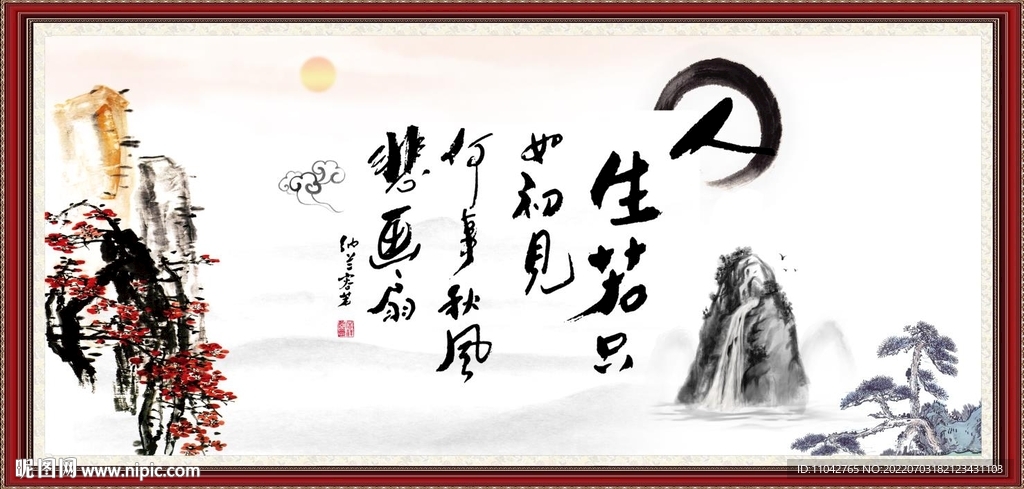 人生若只
如初见
何事秋风
悲画扇
纳兰容若
昵图网 www.nipic.com
ID:11042765 NO:20220703182123431103